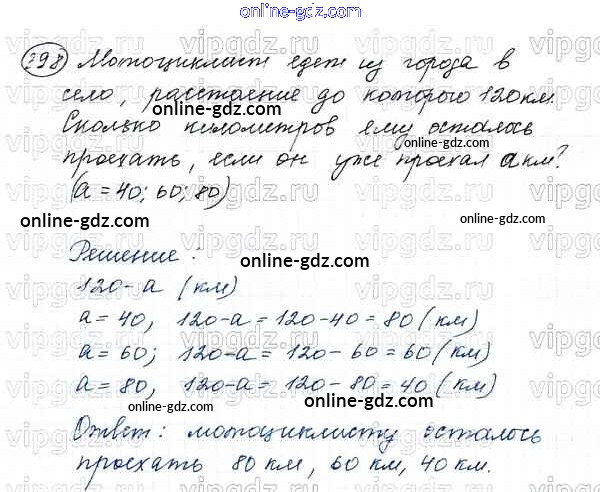 online-gdz.com
298 Мотоциклист едет из города в
село, расстояние до которого 120 км.
online-gdz.com
Сколько километров ему осталось
проехать, если он уже проехал a км?
(a = 40; 60; 80)
online-gdz.com
online-gdz.com
Решение:
online-gdz.com
120-a (км)
a = 40, 120-a = 120-40 = 80 (км)
online-gdz.com
a = 60; 120-a = 120-60 = 60 (км)
a = 80, 120-a = 120-80 = 40 (км)
online-gdz.com
online-gdz.com
Ответ: мотоциклисту осталось
online-gdz.com
проехать 80 км, 60 км, 40 км.